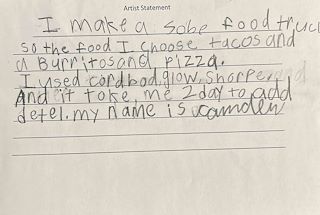 Artist Statement
I make a Sobe food truc
so the food I choose tacos and
a Burritos and pizza.
I used cordbod, glow, shorpe,
And it toke me 2 day to add
detel. my name is camden